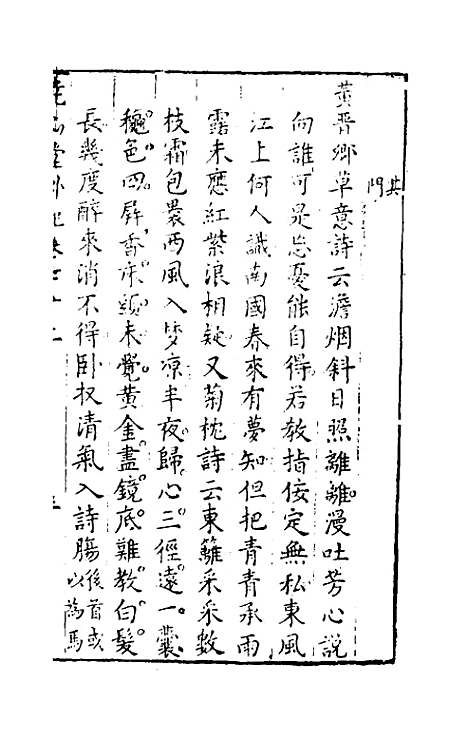 其
門
黃晉卿草意詩云澹烟斜日照離離漫吐芳心説
向誰可是忘憂能自得若教指佞定無私東風
江上何人識南國春來有夢知但把青青承雨
露未應紅紫浪相疑又菊枕詩云東籬采采數
枝霜包裹西風入夢凉半夜歸心三徑遠一囊
秋色四屏香床頭未覺黃金盡鏡底難教白髮
長幾度醉來消不得卧收清氣入詩腸後首或
以為馬
堯山堂外紀卷七十二